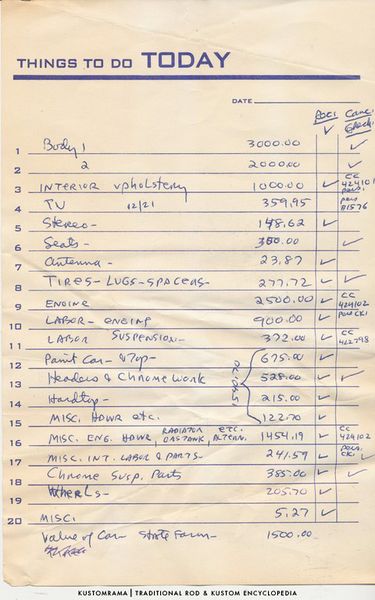 THINGS TO DO TODAY
DATE
Doc. Canc. Check.
1 Body 1 3000.00 ✓
2 2000.00 ✓
2 INTERIOR upholstery 1000.00 ✓ CC 424101 pers.
3 TV 12/21 359.95 pers 81576
4 Stereo- 148.62 ✓
5 Seats- 350.00 ✓
6 Antenna- 23.87 ✓
7 TIRES-LUGS-SPACERS- 277.72 ✓ ✓
8 ENGINE 2500.00 ✓ CC 424102
9 LABOR- ENGINE 900.00 ✓ pers CK1
10 LABOR SUSPENSION- 372.00 ✓ CC 422798
11 Paint Car & Top- 675.00 ✓
12 Headers & Chrome Work 528.00 ✓ ✓
13 Hardtop- 215.00 ✓
14 MISC. HDWR etc. 122.70 ✓
15 MISC. ENG. HDWR, RADIATOR ETC. GAS TANK, ALTERN. 1454.19 ✓ CC 424102
16 MISC. INT. LABOR & PARTS- 241.59 ✓ pers. CK1 ✓
17 Chrome Susp. Parts 385.00 ✓ ✓
18 Wheels- 205.70 ✓
19 MISC. 5.27 ✓
20 Value of Car State Farm- 1500.00
KUSTOMRAMA | TRADITIONAL ROD & KUSTOM ENCYCLOPEDIA